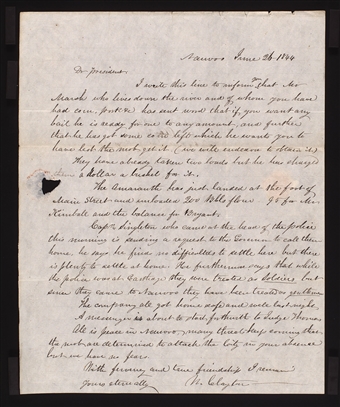 Nauvoo June 26 1844
Dr president.
I write this line to inform you that Mr
Marsh who lives down the river and of whom you have
had corn, pork &c has sent word that if you want any
bail he is ready for me to any amount, and further
that he has got some corn left which he wants you to
have lest the mob get it (we will endeavor to obtain it)
They have already taken two loads but he has charged
them a dollar a bushel for it.
The Amaranth has just landed at the foot of
Main Street and unloaded 200 bbls flour 95 for Mr.
Kimball and the balance for Bryant.
Capt. Singleton who came at the head of the police
this morning is sending a request to the Governor to call them
home, he says he finds no difficulties to settle here but there
is plenty to settle at home. He furthermore says that while
the police was at Carthage they were treated as soldiers but
since they came to Nauvoo they have been treated as gentlemen
The company all got home safe and well last night.
A messenger is about to start forthwith to Judge Thomas
All is peace in Nauvoo, many threats keep coming that
the mob are determined to attack the city in your absence
but we have no fears.
With fervency and true friendship I remain
yours eternally Wm Clayton